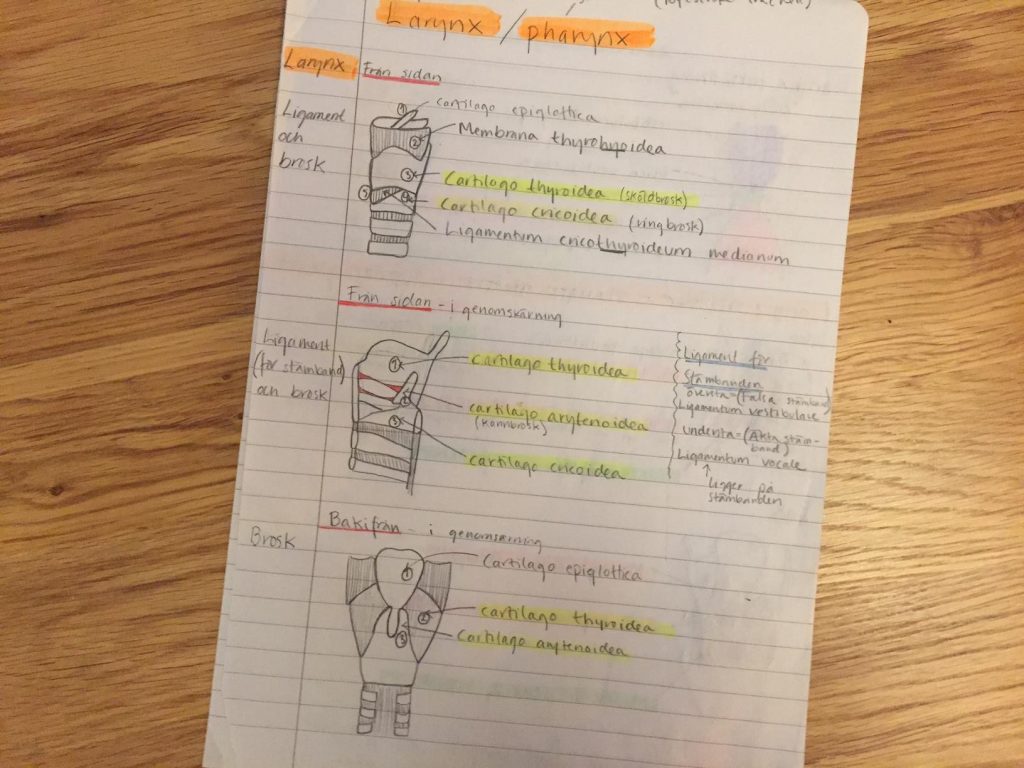 Larynx / pharynx
Larynx
Från sidan
Ligament
och
brosk
1
cartilago epiglottica
2
Membrana thyrohyoidea
3
Cartilago thyroidea (sköldbrosk)
Cartilago cricoidea (ringbrosk)
Ligamentum cricothyroideum medianum
Från sidan - i genomskärning
Ligament
(för stämband)
och brosk
1
cartilago thyroidea
2
cartilago arytenoidea
(kannbrosk)
3
cartilago cricoidea
Ligament för
Stämbanden
översta=(Falsa stämband)
Ligamentum vestibulare
understa=(Äkta stäm-
band)
Ligamentum vocale
Ligger på
stämbanden
Bakifrån - i genomskärning
Brosk
1
Cartilago epiglottica
2
cartilago thyroidea
3
Cartilago arytenoidea